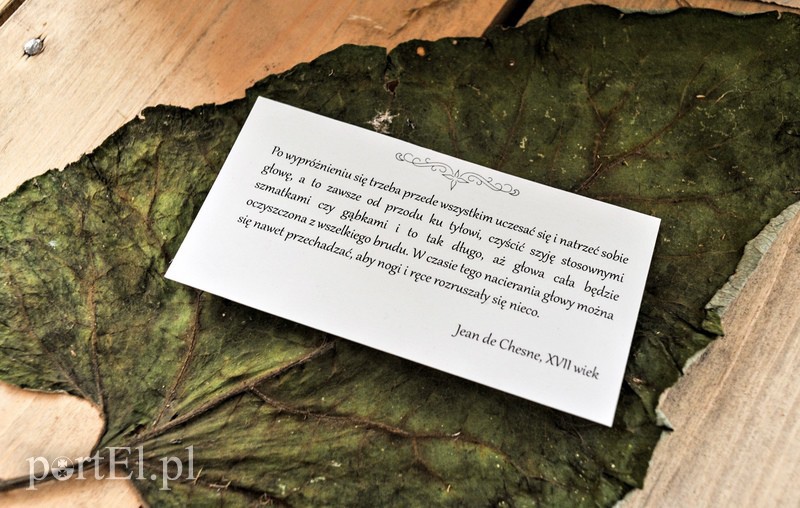 Po wypróżnieniu się trzeba przede wszystkim uczesać się i natrzeć sobie
głowę, a to zawsze od przodu ku tyłowi, czyścić szyję stosownymi
szmatkami czy gąbkami i to tak długo, aż głowa cała będzie
oczyszczona z wszelkiego brudu. W czasie tego nacierania głowy można
się nawet przechadzać, aby nogi i ręce rozruszały się nieco.
Jean de Chesne, XVII wiek
portEl.pl